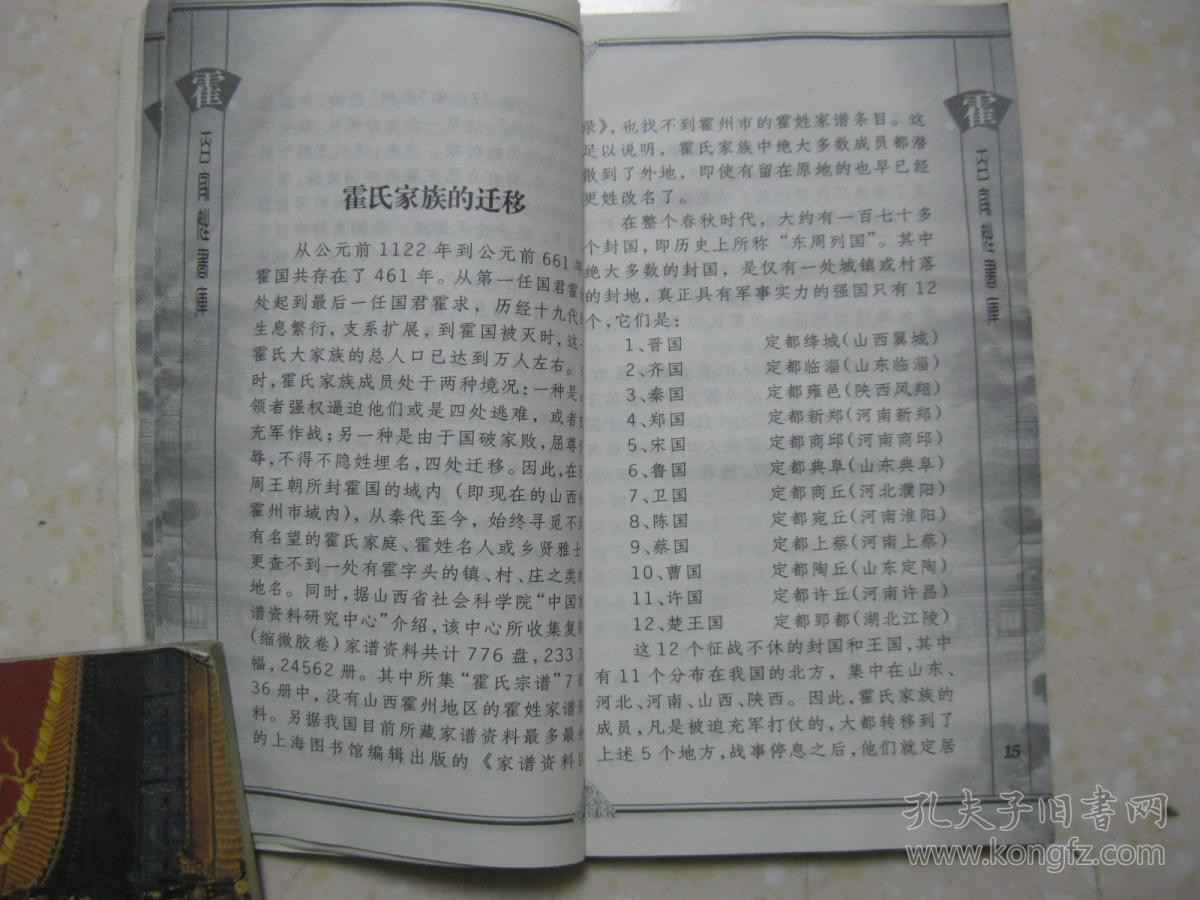 霍
百家姓書庫
霍氏家族的迁移
从公元前1122年到公元前661年
霍国共存在了461年。从第一任国君霍
处起到最后一任国君霍求，历经十九代
生息繁衍，支系扩展，到霍国被灭时，这
霍氏大家族的总人口已达到万人左右。
时，霍氏家族成员处于两种境况：一种是
领者强权逼迫他们或是四处逃难，或者
充军作战；另一种是由于国破家败，屈尊
辱，不得不隐姓埋名，四处迁移。因此，在
周王朝所封霍国的域内（即现在的山西
霍州市域内），从秦代至今，始终寻觅不
有名望的霍氏家庭、霍姓名人或乡贤雅士
更查不到一处有霍字头的镇、村、庄之类
地名。同时，据山西省社会科学院“中国
谱资料研究中心”介绍，该中心所收集复
(缩微胶卷)家谱资料共计776盘，233
幅，24562册。其中所集“霍氏宗谱”7
36册中，没有山西霍州地区的霍姓家谱
料。另据我国目前所藏家谱资料最多最
的上海图书馆编辑出版的《家谱资料
录》，也找不到霍州市的霍姓家谱条目。这
足以说明，霍氏家族中绝大多数成员都潜
散到了外地，即使有留在原地的也早已经
更姓改名了。
在整个春秋时代，大约有一百七十多
个封国，即历史上所称“东周列国”。其中
绝大多数的封国，是仅有一处城镇或村落
的封地，真正具有军事实力的强国只有12
个，它们是：
1、晋国 定都绛城(山西翼城)
2、齐国 定都临淄(山东临淄)
3、秦国 定都雍邑(陕西凤翔)
4、郑国 定都新郑(河南新郑)
5、宋国 定都商邱(河南商邱)
6、鲁国 定都典阜(山东典阜)
7、卫国 定都商丘(河北濮阳)
8、陈国 定都宛丘(河南淮阳)
9、蔡国 定都上蔡(河南上蔡)
10、曹国 定都陶丘(山东定陶)
11、许国 定都许丘(河南许昌)
12、楚王国 定都郢都(湖北江陵)
这12个征战不休的封国和王国，其中
有11个分布在我国的北方，集中在山东、
河北、河南、山西、陕西。因此，霍氏家族的
成员，凡是被迫充军打仗的，大都转移到了
上述5个地方，战事停息之后，他们就定居
霍
百家姓書庫
15
孔夫子旧书网
www.kongfz.com